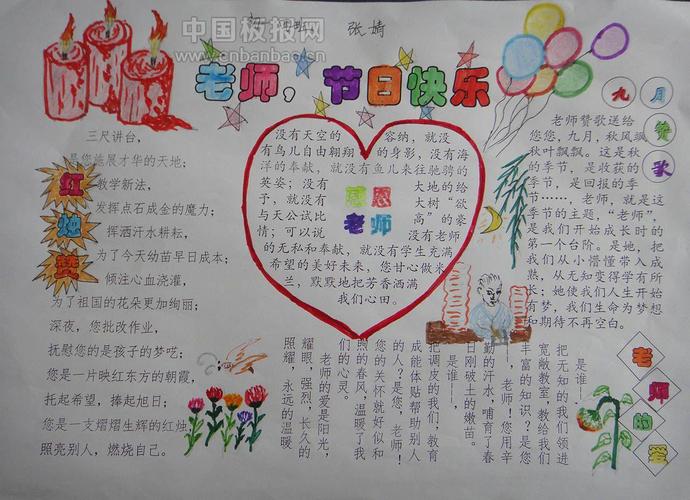 中国板报网
www.cnbanbao.cn
张婧
老师，节日快乐
三尺讲台，
是您施展才华的天地；
教学新法，
发挥点石成金的魔力；
挥洒汗水耕耘，
为了今天幼苗早日成才；
倾注心血浇灌，
为了祖国的花朵更加绚丽；
深夜，您批改作业，
抚慰您的是孩子的梦呓；
您是一片映红东方的朝霞，
托起希望，捧起旭日；
您是一支熠熠生辉的红烛，
照亮别人，燃烧自己。
红烛赞
没有天空的 容纳，就没
有鸟儿自由翱翔 的身影，没有海
洋的奉献，就没有鱼儿来往驰骋的
英姿；没有 大地的给
予，就没有 大树“欲
与天公试比 高”的豪
情；可以说 没有老师
的无私和奉献，就没有学生充满
希望的美好未来，您甘心做米
兰，默默地把芳香洒满
我们心田。
感恩
老师
九月赞歌
老师赞歌送给
您您，九月，秋风飘，
秋叶飘飘。这是秋
的季节，是收获的
季节，是回报的季
节……，老师，就是这
的季节的主题，“老师”，
是我们开始成长时的
第一个台阶。是她，把
我们从小懵懂带入成
熟，从无知变得学有所
长：她使我们人生开始
有梦，我们生命为梦想
和期待不再空白。
是谁——
把无知的我们领进
宽敞教室，教给我们
丰富的知识？是您
——，老师！您用辛
勤的汗水，哺育了春
日刚破土的嫩苗。
是谁——
把调皮的我们，教育
成能体贴帮助别人
的人？是您，老师！
您的关怀就好似和
煦的春风，温暖了我
们的心灵。
老师的爱是阳光，
耀眼，强烈，长久的
照耀，永远的温暖
老师的爱